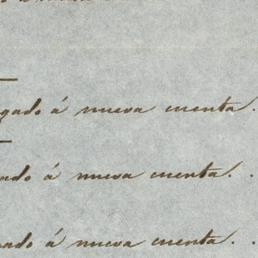 gado á nueva cuenta.
ado á nueva cuenta. .
gado á nueva cuenta. .